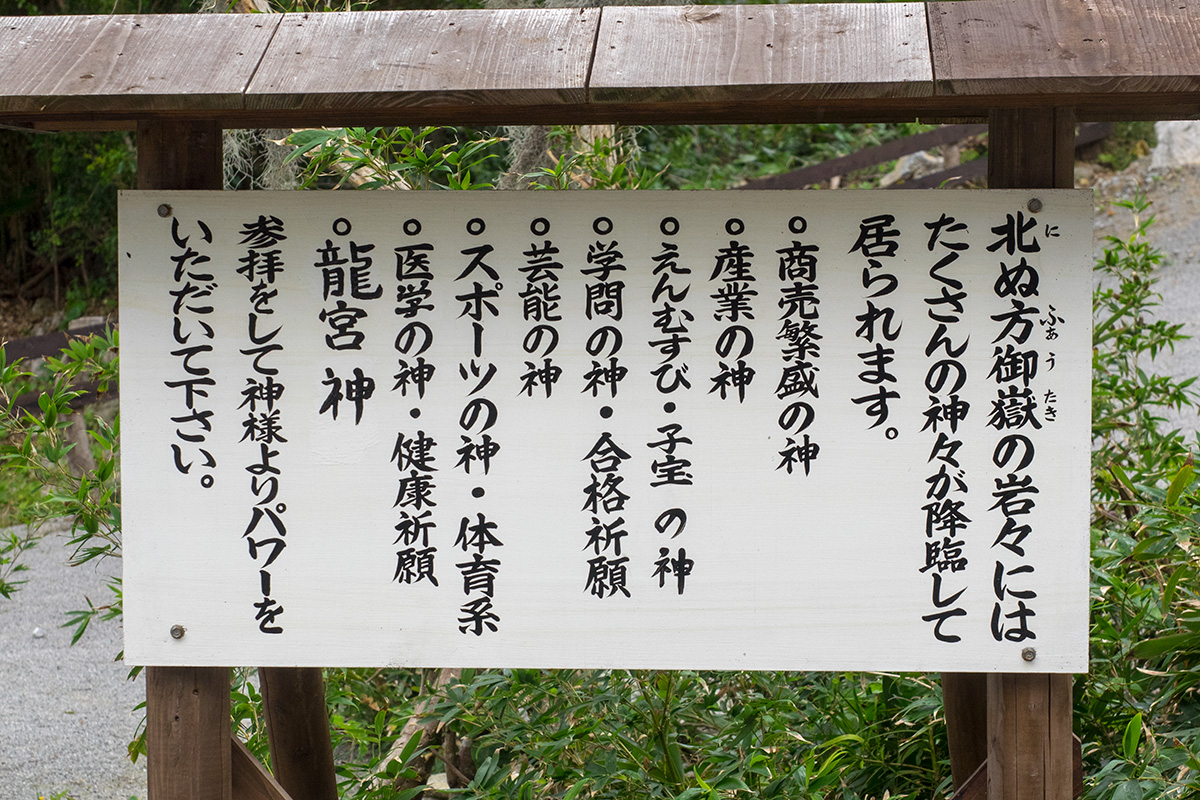 北ぬ方御嶽の岩々には
に ふぁ うたき
たくさんの神々が降臨して
居られます。
○商売繁盛の神
○産業の神
○えんむすび・子宝の神
○学問の神・合格祈願
○芸能の神
○スポーツの神・体育系
○医学の神・健康祈願
○龍宮神
参拝をして神様よりパワーを
いただいて下さい。